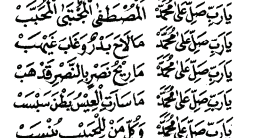 يَارَبِّ صَلِّ عَلَى مُحَمَّدْ الْمُصْطَفَى الْمُجْتَبَى الْمُحَبَّبْ
يَارَبِّ صَلِّ عَلَى مُحَمَّدْ مَا لَاحَ بَدْرٌ وَغَابَ غَيْهَبْ
يَارَبِّ صَلِّ عَلَى مُحَمَّدْ مَا رِيحُ نَصْرٍ بِالنَّصْرِ قَدْ هَبْ
يَارَبِّ صَلِّ عَلَى مُحَمَّدْ مَا سَارَتِ الْعِيْسُ بَطْنَ سَبْسَبْ
يَارَبِّ صَلِّ عَلَى مُحَمَّدْ وَكُلِّ مَنْ لِلْحَبِيبِ يُنْسَبْ